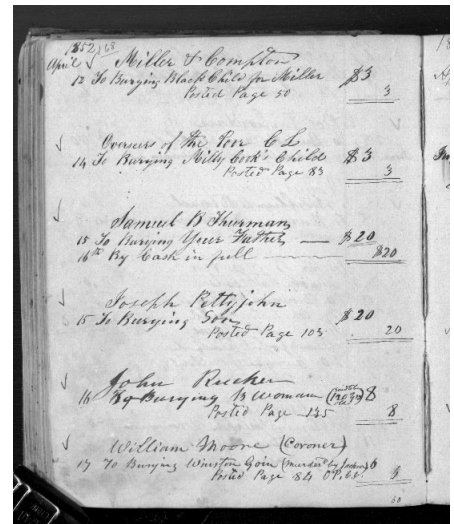 1852 68
April Miller & Compton
12 To Burying Black Child for Miller $3
Posted Page 50 3
Overseers of the Poor C L
14 To Burying Milly Cook's Child $3
Posted Page 83 3
Samuel B Thurman
15 To Burying Your Father $20
16th By Cash in full $20
Joseph Pettyjohn
15 To Burying Son $20
Posted Page 103 20
John Rucker
16 Burying B Woman 8
Posted Page 135 8
William Moore (Coroner)
17 To Burying Winston Goin (murdered by Jackson)
Posted Page 84 O P, C.C. 3